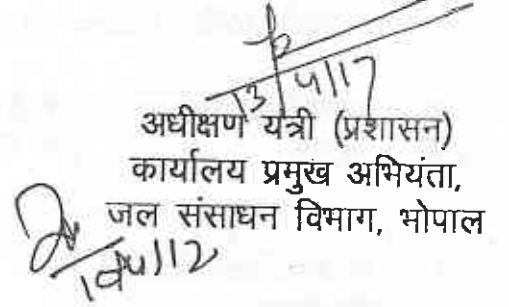 13/4/17
अधीक्षण यंत्री (प्रशासन)
कार्यालय प्रमुख अभियंता,
जल संसाधन विभाग, भोपाल